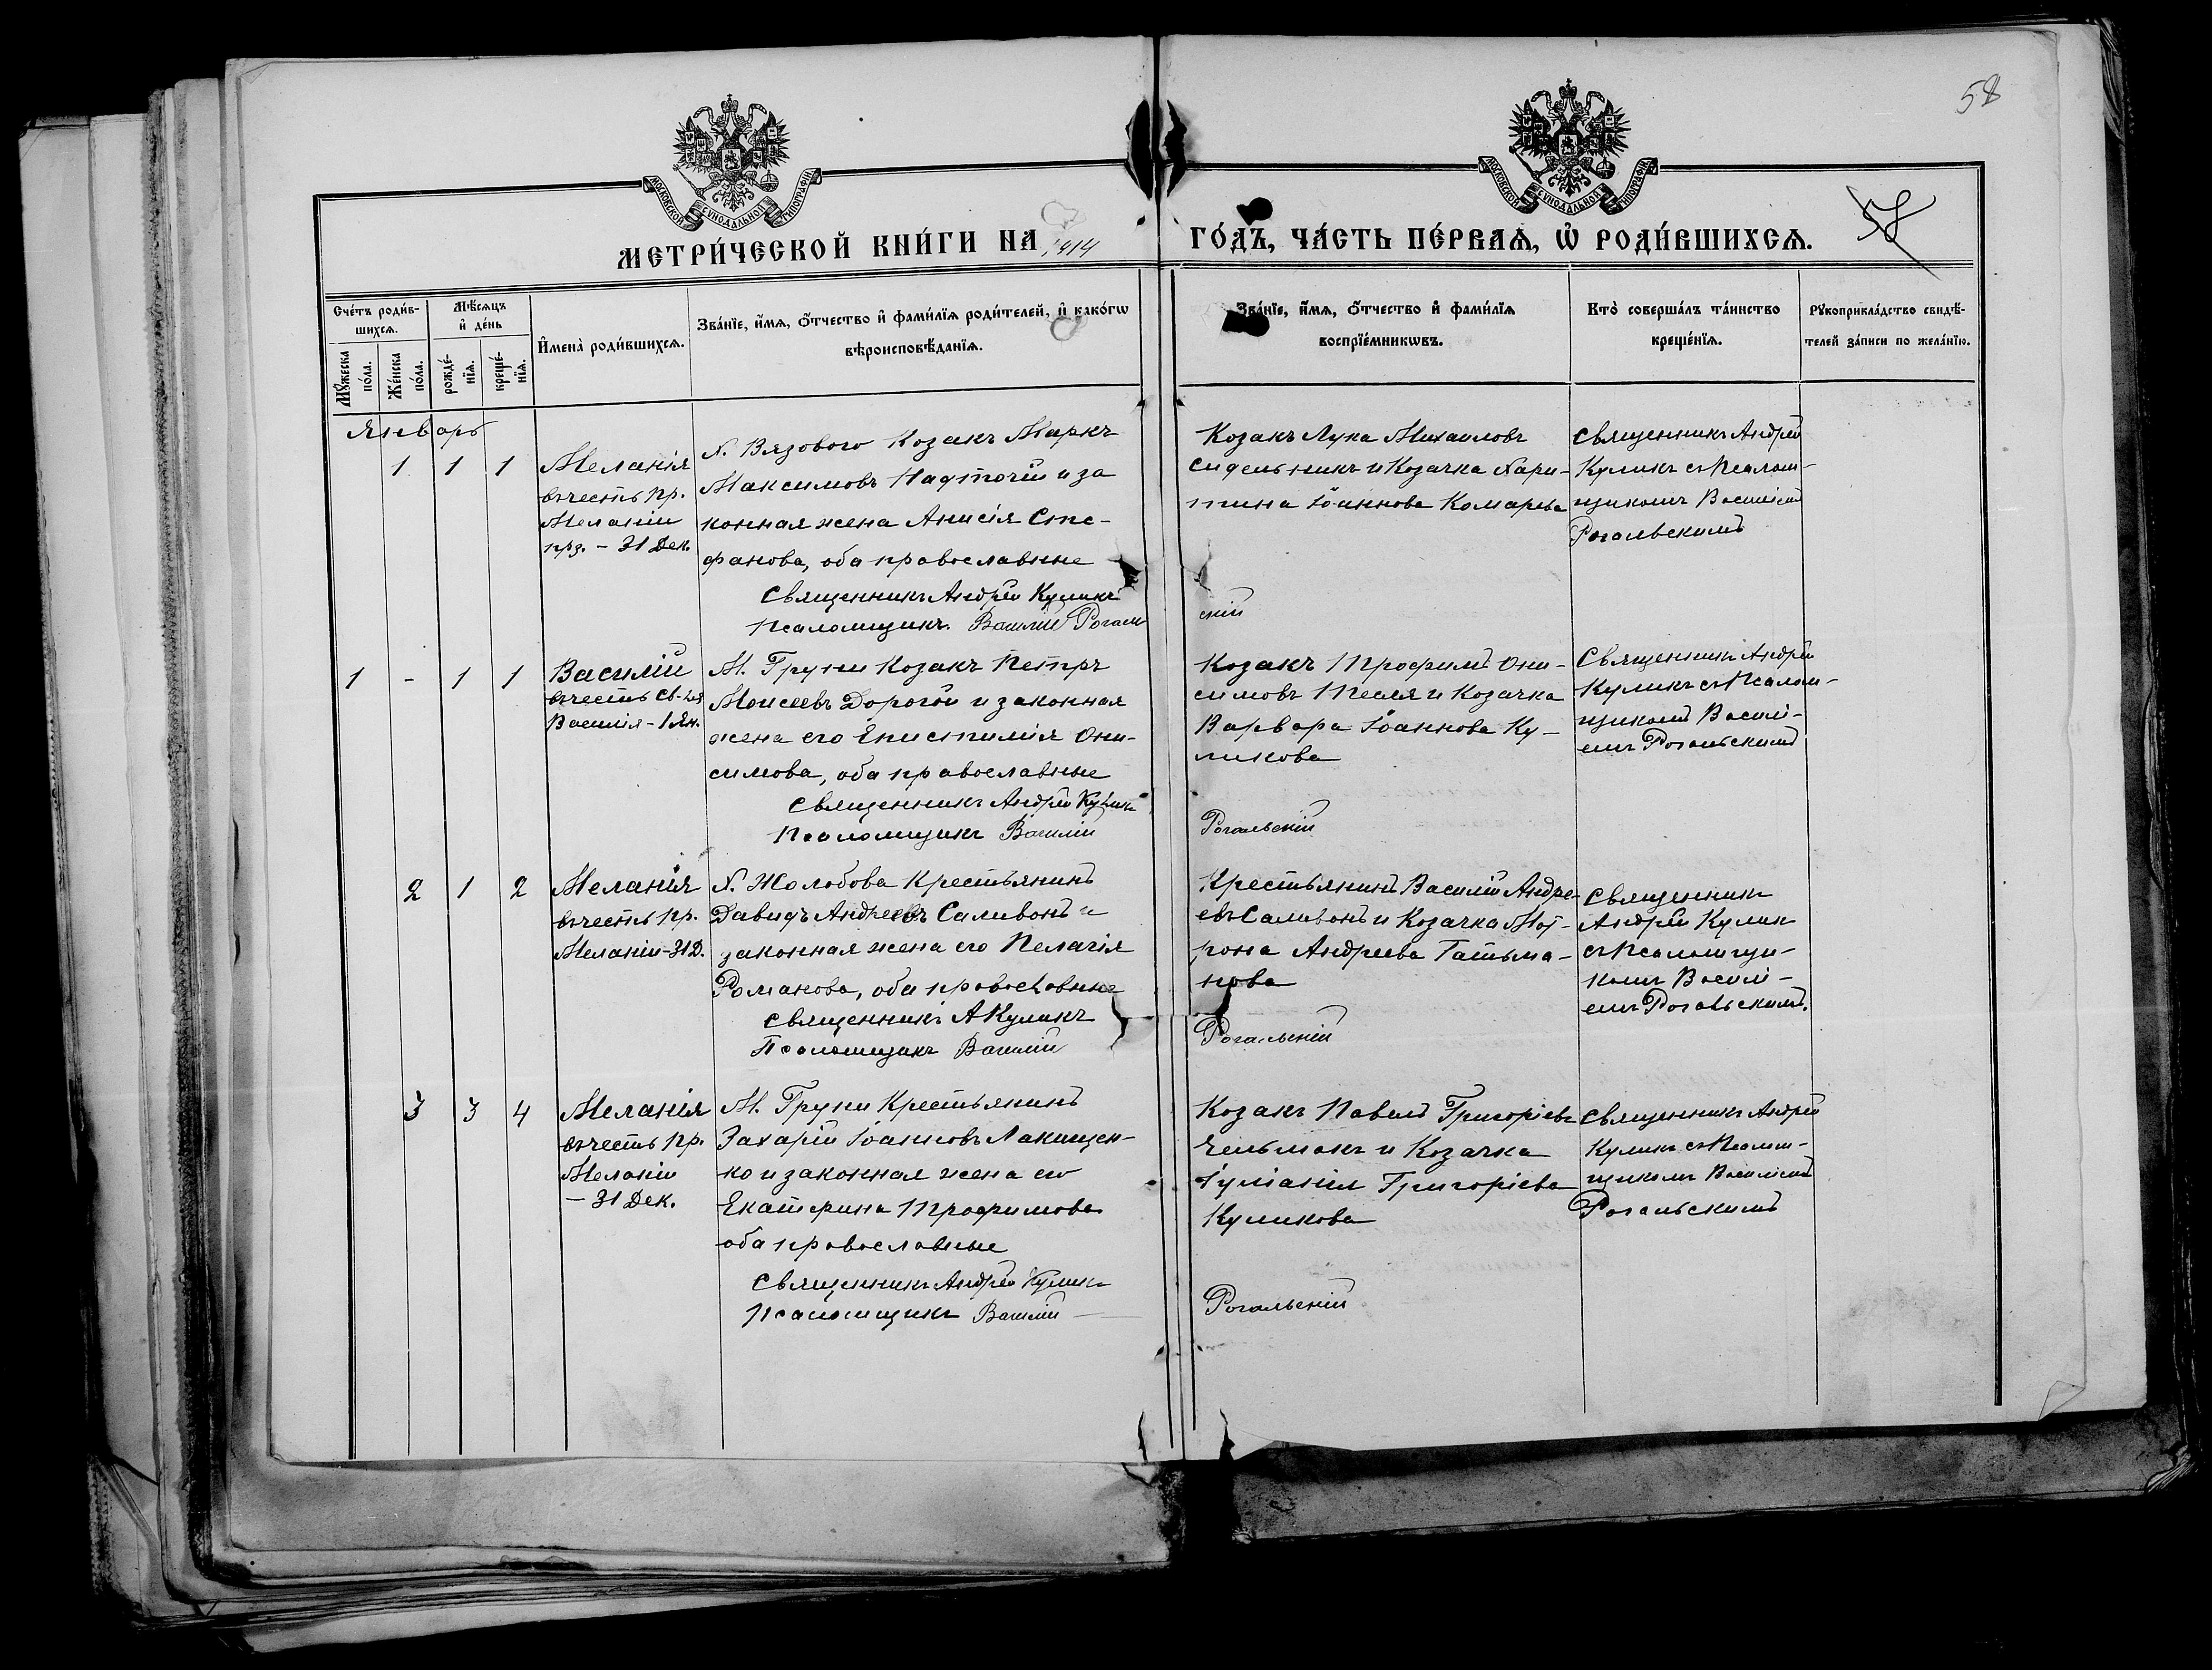 58
МОСКОВСКОЙ СѴНОДАЛЬНОЙ ТИПОГРАФІИ
МОСКОВСКОЙ СѴНОДАЛЬНОЙ ТИПОГРАФІИ
МЕТРИ́ЧЕСКОЙ КНИ́ГИ НА 1914
ГО́ДЪ, ЧА́СТЬ ПЕ́РВАѦ, Ѽ РОДИ́ВШИХСѦ.
58
Сче́тъ роди́в-
шихсѧ.
Мꙋ́жеска
по́ла.
Же́нска
по́ла.
Мѣ́сѧцъ
и҆ де́нь
рожде́-
нїѧ.
креще́-
нїѧ.
И҆мена̀ роди́вшихсѧ.
Зва́нїе, и҆́мѧ, ѻ҆́тчество и҆ фами́лїѧ роди́телей, и҆ како́гѡ
вѣроисповѣ́данїѧ.
Зва́нїе, и҆́мѧ, ѻ҆́тчество и҆ фами́лїѧ
воспрїе́мникѡвъ.
Кто̀ соверша́лъ та́инство
креще́нїѧ.
Рꙋкоприкла́дство свидѣ́-
телей за́писи по жела́нїю.
Январь
1 1 1
Меланія
въ честь пр.
Меланіи
прз. - 31 Дек.
Х. Вязового Козакъ Маркъ
Максимовъ Надточій и за
конная жена Анисія Сте-
фанова, оба православные
Священникъ Андрей Куликъ
Псаломщикъ Василій Рогаль
Козакъ Лука Михаиловъ
Сидельникъ и Козачка Хари-
тина Іоаннова Комарева
скій
Священникъ Андрей
Куликъ съ Псалом-
щикомъ Василіемъ
Рогальскимъ
1 - 1 1
Василій
въ честь св.
Василія - 1 Ян.
М. Груни Козакъ Петръ
Моисеевъ Дорогой и законная
жена его Епистимія Они-
симова, оба православные
Священникъ Андрей Куликъ
Псаломщикъ Василій
Козакъ Трофимъ Они-
симовъ и Козачка
Варвара Іоаннова Ку-
ликова
Рогальскій
Священникъ Андрей
Куликъ съ Псалом-
щикомъ Васили-
емъ Рогальскимъ
2 1 2
Меланія
въ честь пр.
Меланіи - 31 Д.
Х. Жолобова Крестьянинъ
Давидъ Андреевъ Саливонъ и
законная жена его Пелагія
Романова, оба православные
Священникъ А Куликъ
Псаломщикъ Василій
Крестьянинъ Василій Андре-
евъ Саливонъ и Козачка Мот-
рона Андреева Гатьма-
нова
Рогальскій
Священникъ
Андрей Кулик
съ Псаломщи-
комъ Васили-
емъ Рогальскимъ.
3 3 4
Меланія
въ честь пр.
Меланіи
- 31 Дек.
М. Груни Крестьянинъ
Захарій Іоанновъ Лакищен-
ко и законная жена его
Екатерина Трофимова
оба православные
Священникъ Андрей Куликъ
Псаломщикъ Василій
Козакъ Павелъ Григоріевъ
Чельмакъ и Козачка
Іуліанія Григоріева
Куликова
Рогальскій
Священникъ Андрей
Куликъ съ Псалом-
щикомъ Василіемъ
Рогальскимъ